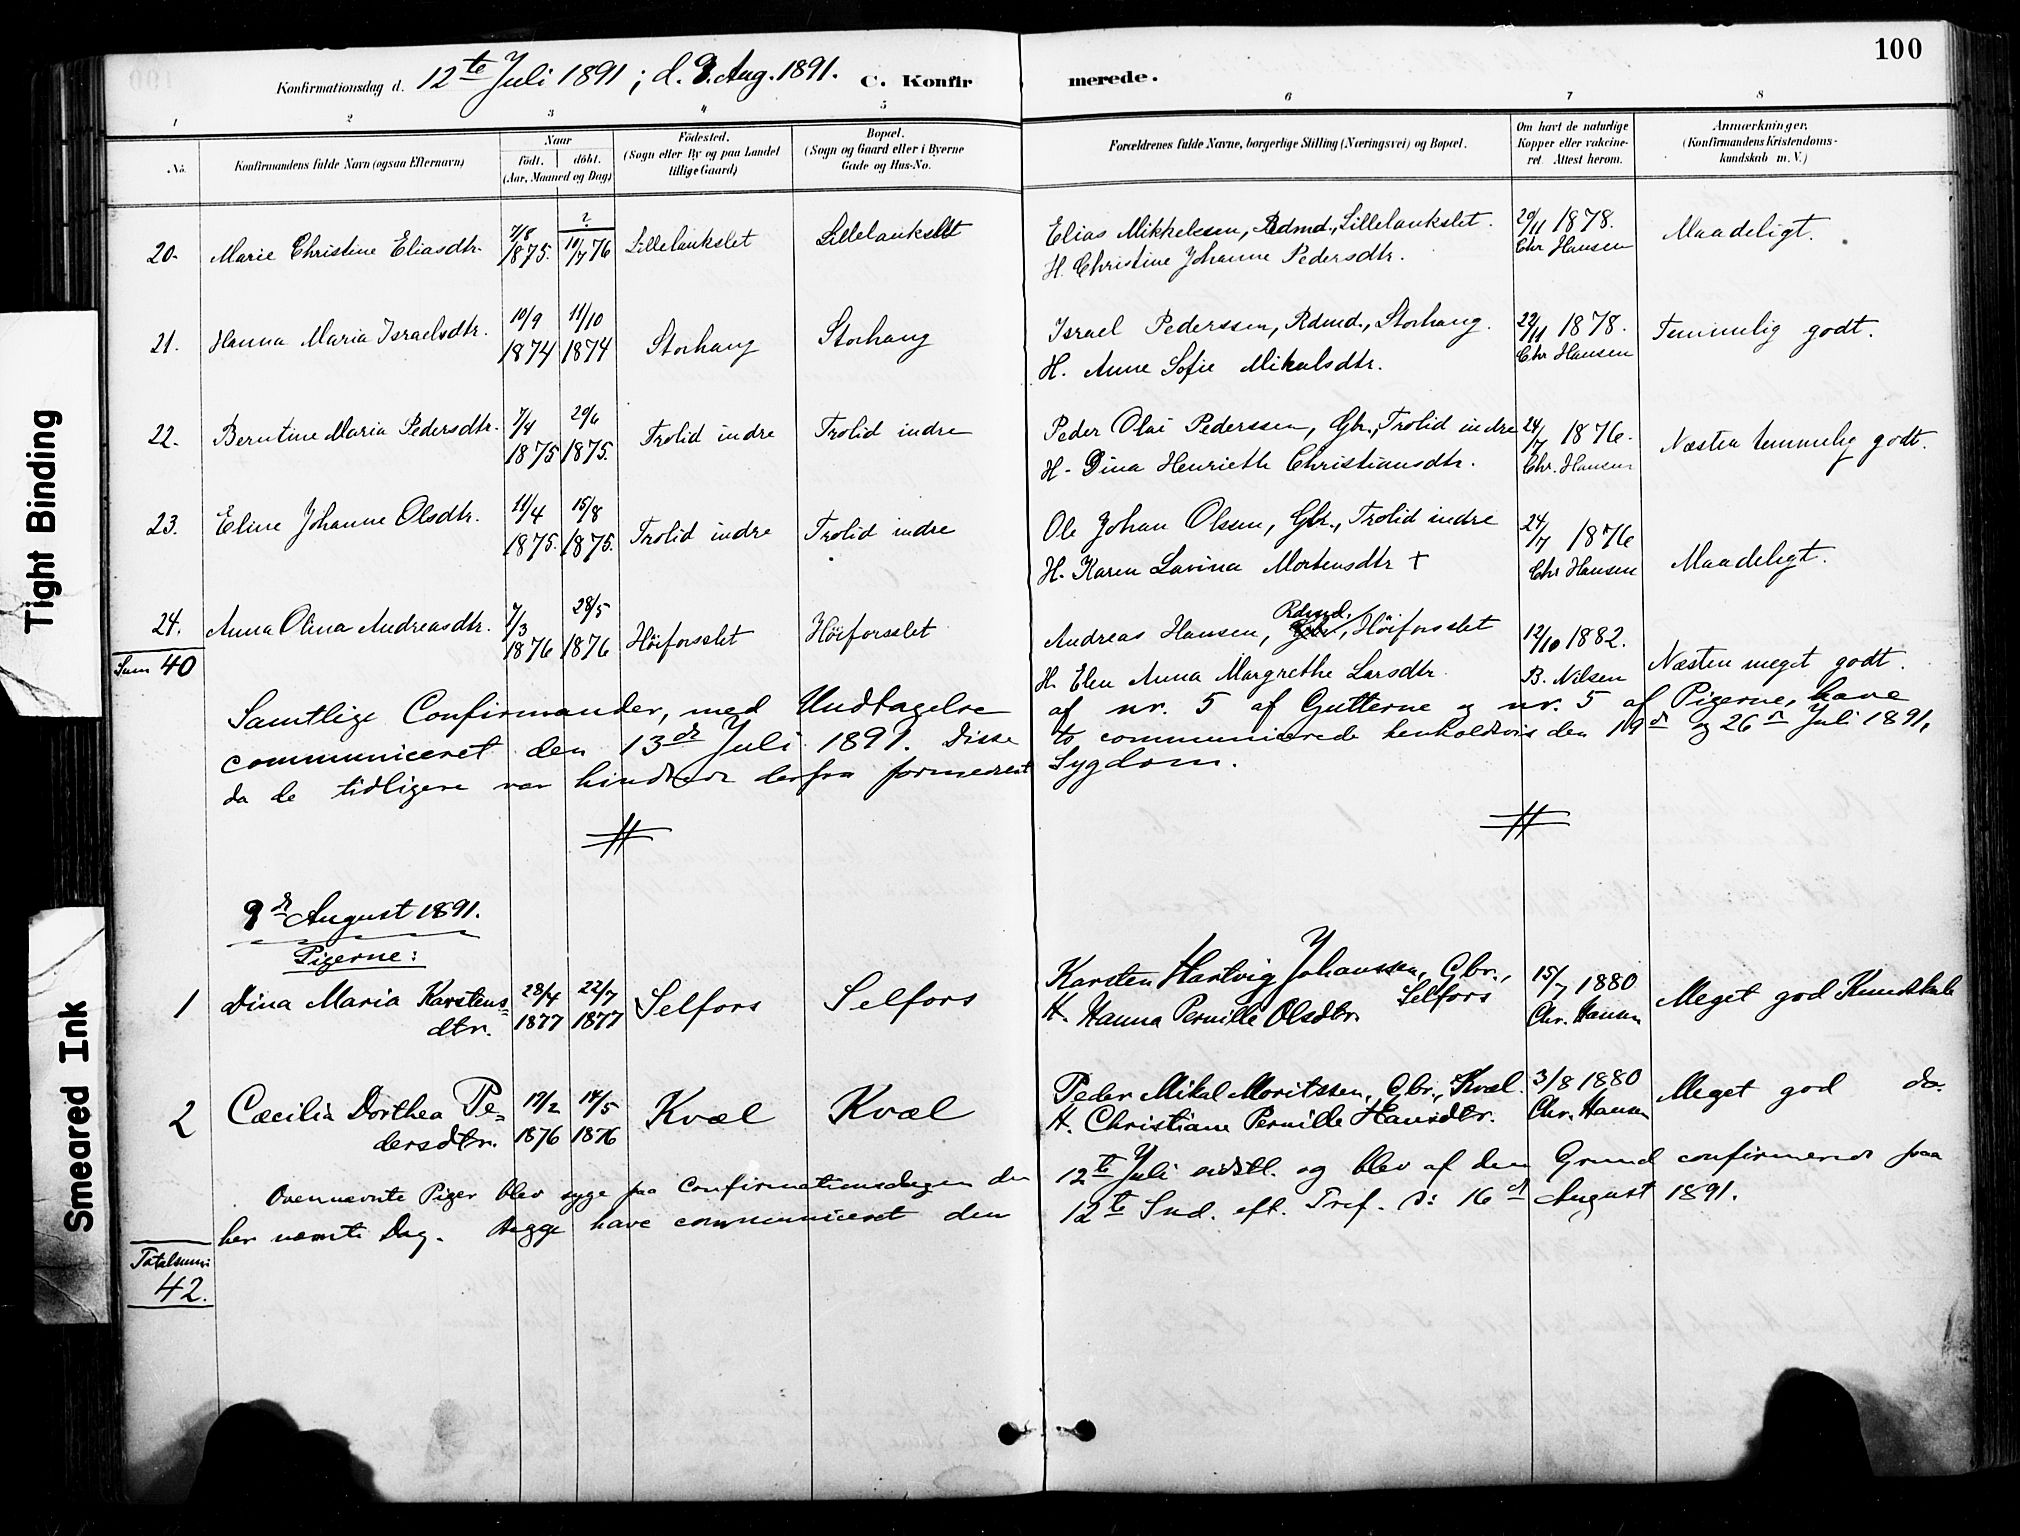 100
Konfirmationsdag d. 12te Juli 1891; d. 9. Aug. 1891. C. Konfirmerede.
1 2 3 4 5 6 7 8
No. Konfirmandens fulde Navn (ogsaa Efternavn) Naar født. døbt. (Aar, Maaned og Dag) Fødested. (Sogn eller By og paa Landet tillige Gaard) Bopæl. (Sogn og Gaard eller i Byerne Gade og Hus-No. Forældrenes fulde Navne, borgerlige Stilling (Næringsvei) og Bopæl. Om havt de naturlige Kopper eller vakcineret. Attest herom. Anmærkninger. (Konfirmandens Kristendomskundskab m. V.)
20. Marie Christine Eliasdtr. 7/8 1875. ? 10/7 76 Lillelaukslet Lillelaukslet Elias Mikkelsen, Rdmd., Lillelaukslet. 20/11 1878. Maadeligt.
H. Christine Johanne Pedersdtr. Chr Hansen
21. Hanna Maria Israelsdtr. 10/9 1874 11/10 1874 Storhaug Storhaug Israel Pederssen, Rdmd., Storhaug. 22/11 1878. Temmelig godt.
H. Anne Sofie Mikalsdtr. Chr Hansen
22. Berntine Maria Pedersdtr. 7/4 1875 29/6 1875. Trolid indre Trolid indre Peder Olai Pederssen, Gbr., Trolid indre 24/7 1876. Næsten temmelig godt.
H. Dina Henriette Christiansdtr. Chr. Hansen
23. Eline Johanne Olsdtr. 11/4 1875. 15/8 1875. Trolid indre Trolid indre Ole Johan Olsen, Gbr., Trolid indre 24/7 1876
H. Karen Lavina Mortensdtr + Chr Hansen Maadeligt.
24. Anna Olina Andreasdtr. 7/3 1876 28/5 1876 Höiforsslet Höiforsslet Andreas Hansen, Rdmd., Höiforsslet 12/10 1882.
Sum 40 H. Elen Anna Margrethe Larsdtr. B. Nilsen Næsten meget godt.
Samtlige Confirmander, med Undtagelse af nr. 5 af Gutterne og nr. 5 af Pigerne, have
communiceret den 13de Juli 1891. Disse to communicerede henholdsvis den 19de og 26de Juli 1891,
da de tidligere var hindrede derfra formedelst Sygdom.
9de August 1891.
Pigerne:
1 Dina Maria Karstens= 28/4 1877 22/7 1877 Selfors Selfors Karsten Hartvig Johanssen, Gbr., Selfors 15/7 1880 Meget god Kundskab
dtr. H. Hanna Pernille Olsdtr. Chr. Hansen
2 Cæcilia Dorthea Pe= 19/2 1876 14/5 1876 Kvæl Kvæl Peder Mikal Moritssen, Gbr., Kvæl. 3/8 1880 Meget god do.
dersdtr. H. Christiane Pernille Hansdtr. Chr. Hansen
Ovennævnte Piger blev syge paa Confirmationsdagen den 12te Juli sidstl. og blev af den Grund confirmerede paa
her nævnte Dag. Begge have communiceret den 12te Snd. eft. Tref. ɔ: 16de August 1891.
Totalsum:
42.
Tight Binding
Smeared Ink